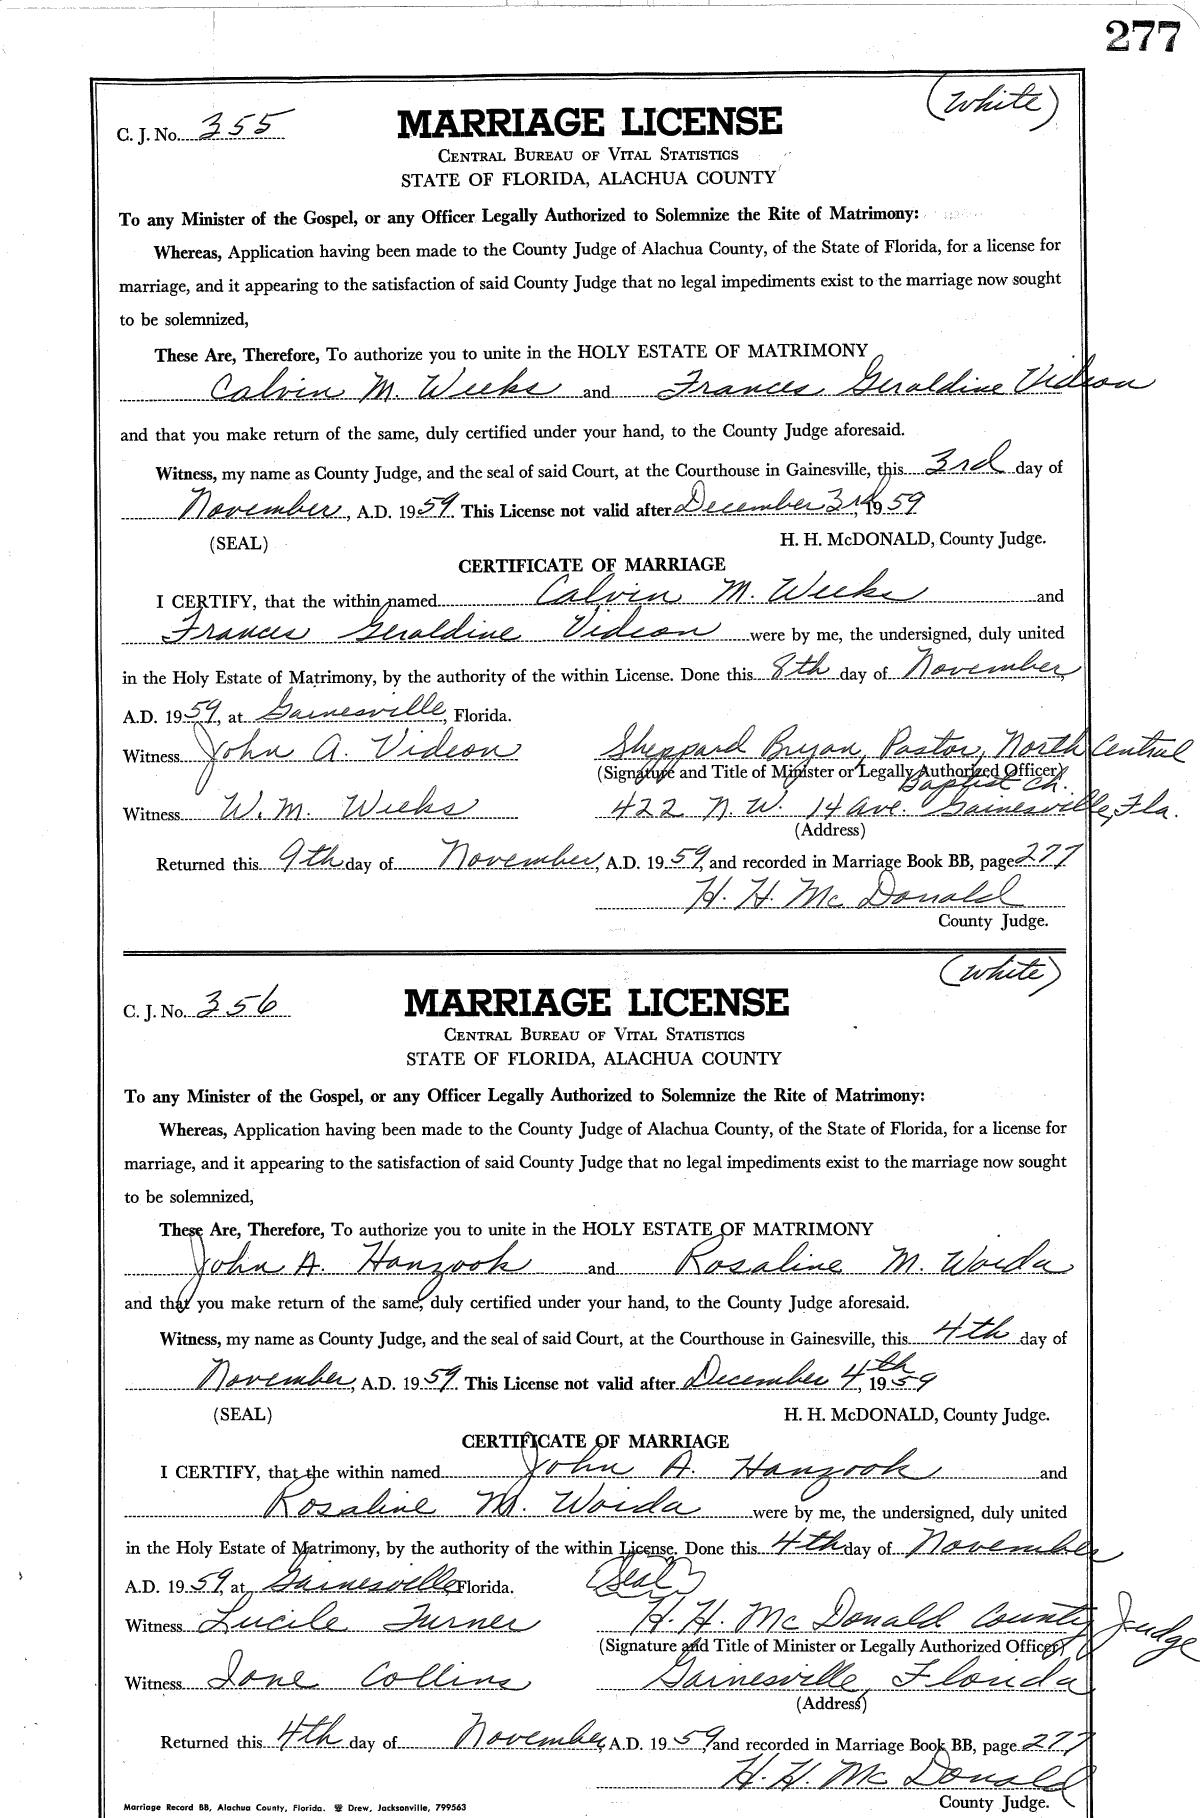 277
(White)
C. J. No. 355
MARRIAGE LICENSE
CENTRAL BUREAU OF VITAL STATISTICS
STATE OF FLORIDA, ALACHUA COUNTY
To any Minister of the Gospel, or any Officer Legally Authorized to Solemnize the Rite of Matrimony:
Whereas, Application having been made to the County Judge of Alachua County, of the State of Florida, for a license for
marriage, and it appearing to the satisfaction of said County Judge that no legal impediments exist to the marriage now sought
to be solemnized,
These Are, Therefore, To authorize you to unite in the HOLY ESTATE OF MATRIMONY
Calvin M. Weeks and Frances Geraldine Videon
and that you make return of the same, duly certified under your hand, to the County Judge aforesaid.
Witness, my name as County Judge, and the seal of said Court, at the Courthouse in Gainesville, this 3rd day of
November, A.D. 1959. This License not valid after December 3rd, 1959
(SEAL) H. H. McDONALD, County Judge.
CERTIFICATE OF MARRIAGE
I CERTIFY, that the within named Calvin M. Weeks and
Frances Geraldine Videon were by me, the undersigned, duly united
in the Holy Estate of Matrimony, by the authority of the within License. Done this 8th day of November,
A.D. 1959, at Gainesville, Florida.
Witness John A. Videon Sheppard Bryan, Pastor, North Central
(Signature and Title of Minister or Legally Authorized Officer)
Baptist Ch.
Witness W. M. Weeks 422 N. W. 14 Ave. Gainesville, Fla.
(Address)
Returned this 9th day of November, A.D. 1959, and recorded in Marriage Book BB, page 277
H. H. McDonald
County Judge.
(White)
C. J. No. 356
MARRIAGE LICENSE
CENTRAL BUREAU OF VITAL STATISTICS
STATE OF FLORIDA, ALACHUA COUNTY
To any Minister of the Gospel, or any Officer Legally Authorized to Solemnize the Rite of Matrimony:
Whereas, Application having been made to the County Judge of Alachua County, of the State of Florida, for a license for
marriage, and it appearing to the satisfaction of said County Judge that no legal impediments exist to the marriage now sought
to be solemnized,
These Are, Therefore, To authorize you to unite in the HOLY ESTATE OF MATRIMONY
John A. Hanzook and Rosaline M. Woida
and that you make return of the same, duly certified under your hand, to the County Judge aforesaid.
Witness, my name as County Judge, and the seal of said Court, at the Courthouse in Gainesville, this 4th day of
November, A.D. 1959. This License not valid after December 4th, 1959
(SEAL) H. H. McDONALD, County Judge.
CERTIFICATE OF MARRIAGE
I CERTIFY, that the within named John A. Hanzook and
Rosaline M. Woida were by me, the undersigned, duly united
in the Holy Estate of Matrimony, by the authority of the within License. Done this 4th day of November
A.D. 1959, at Gainesville, Florida. (Seal)
Witness Lucile Turner H. H. McDonald County Judge
(Signature and Title of Minister or Legally Authorized Officer)
Witness Ione Collins Gainesville, Florida
(Address)
Returned this 4th day of November, A.D. 1959, and recorded in Marriage Book BB, page 277
H. H. McDonald
County Judge.
Marriage Record BB, Alachua County, Florida. Drew, Jacksonville, 799563